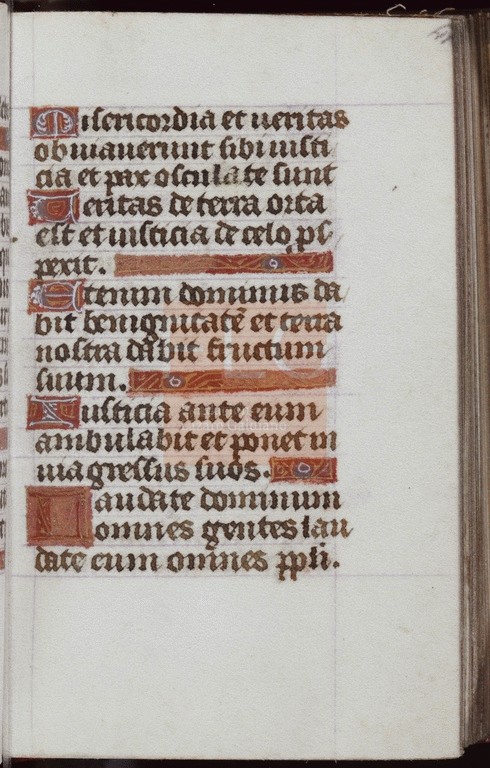 Misericordia et ueritas
obuiauerunt sibi iusti
cia et pax osculate sunt
Ueritas de terra orta
est et iusticia de celo ps
pexit.
Etenim dominus da
bit benignitatē et terra
nostra dabit fructum
suum.
Iusticia ante eum
ambulabit et ponet in
uia gressus suos.
Laudate dominum
omnes gentes lau
date eum omnes ppli.